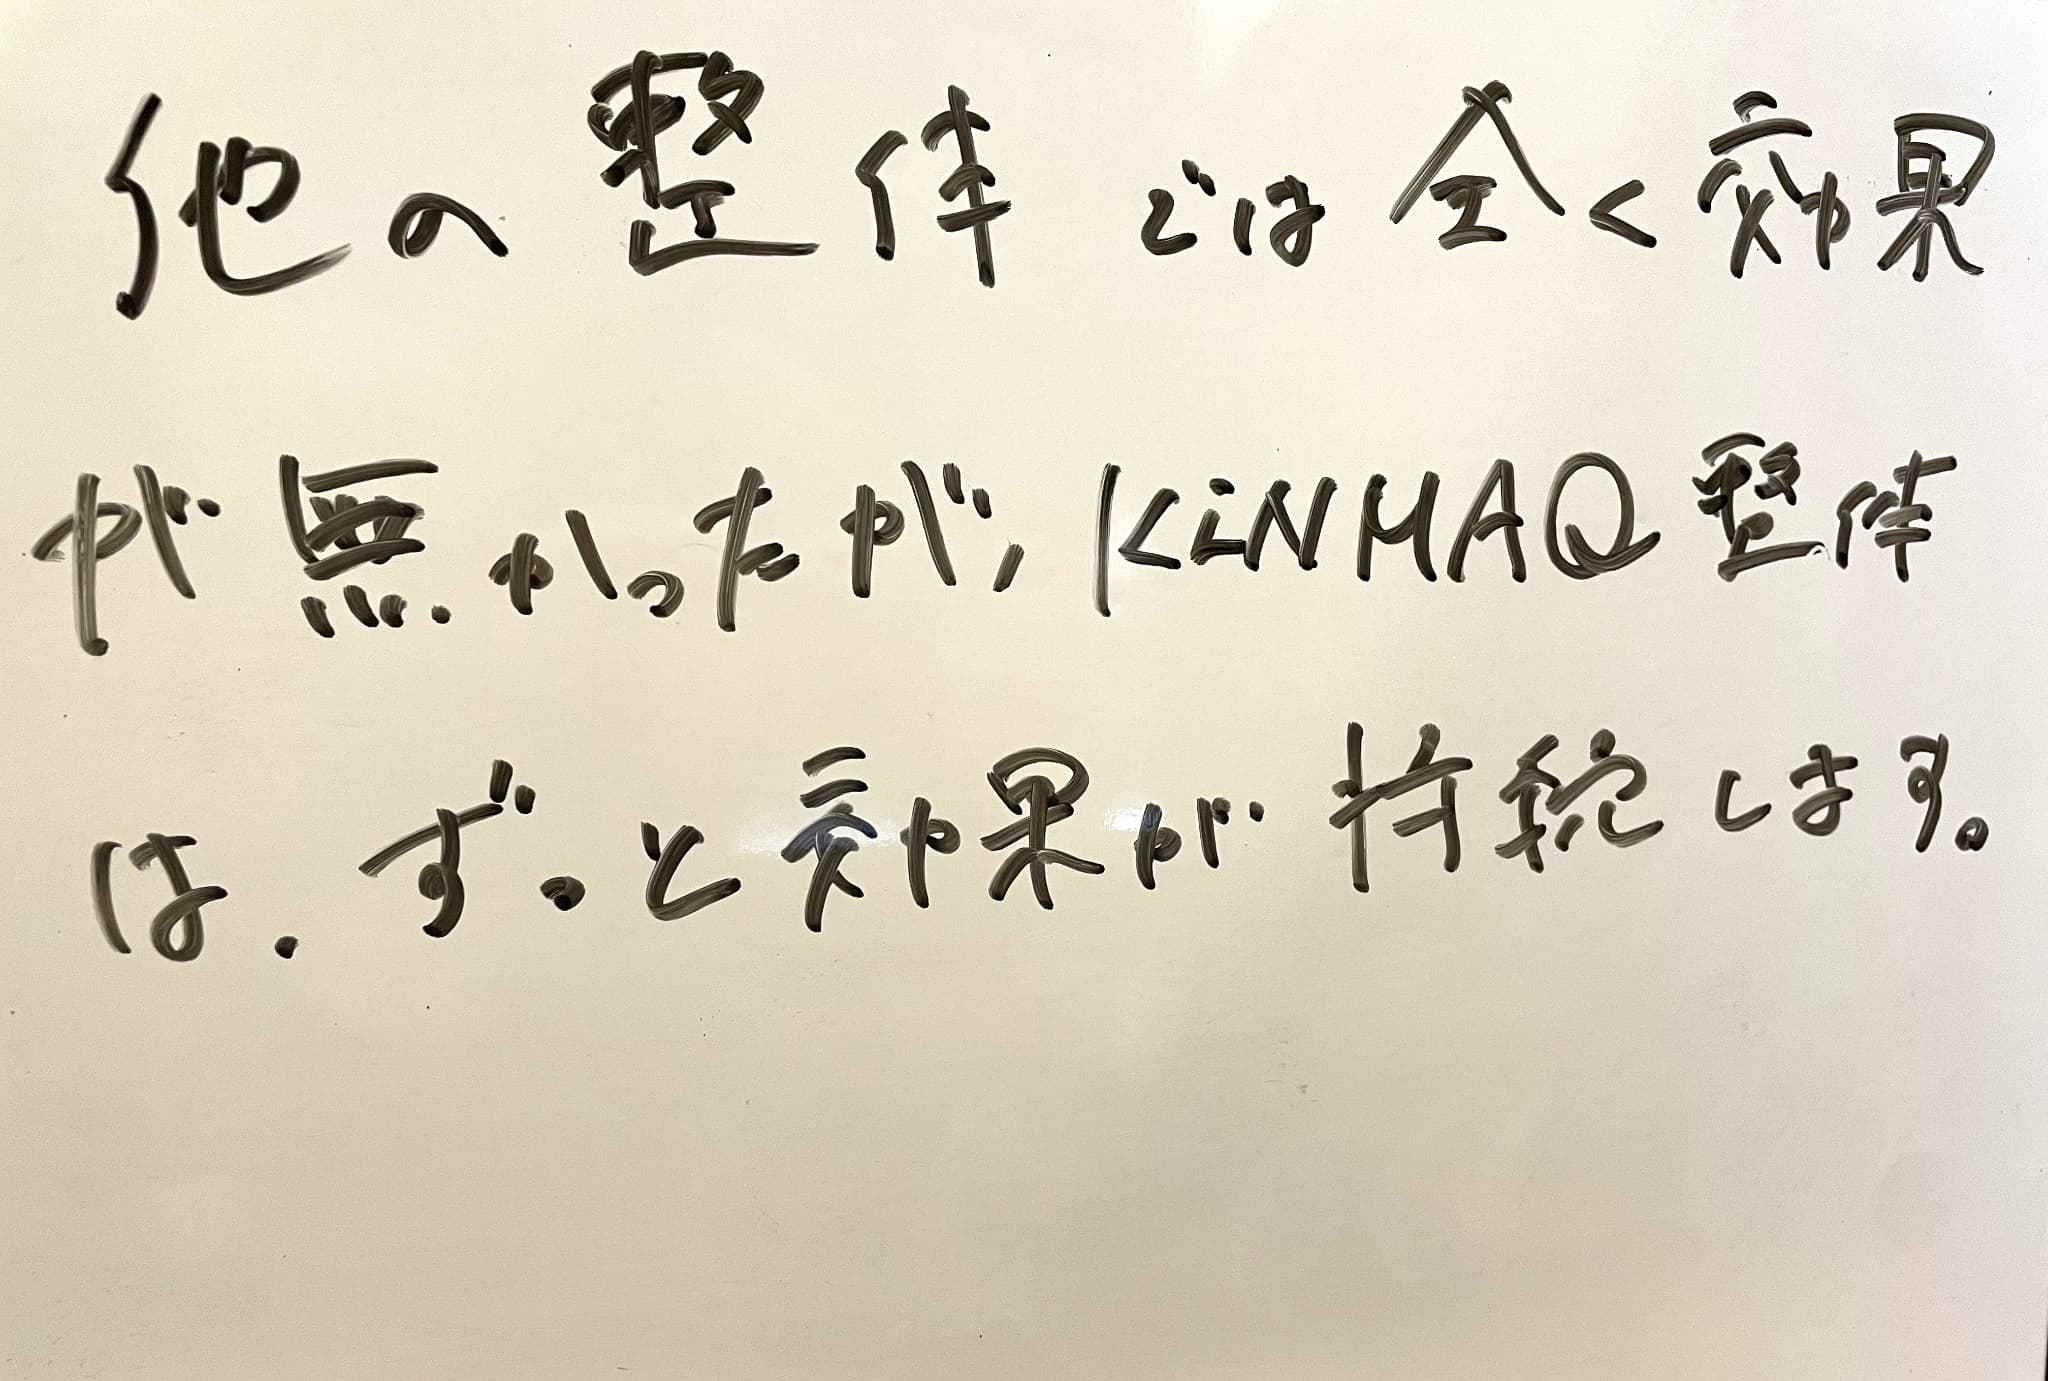 他の整体では全く効果
が無かったが、KiNMAQ整体
は、ずっと効果が持続します。